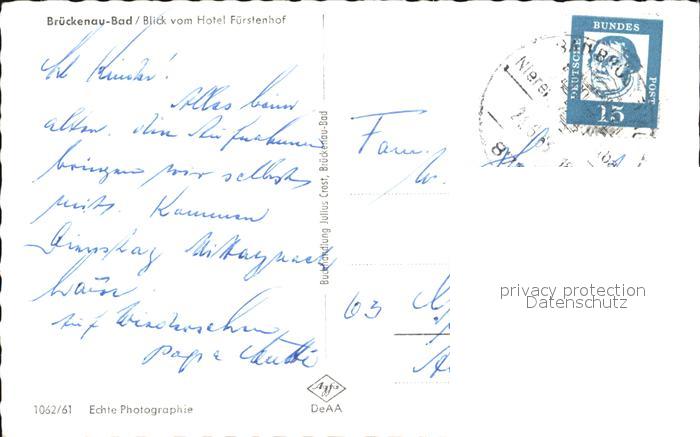 Brückenau-Bad / Blick vom Hotel Fürstenhof
Kinder!
Alles beim
alten. Die Aufnahmen
bringen wir selbst
mit. Kommen
Dienstag Mittag nach
Hause.
Auf Wiedersehen
Papa Mutti
1062/61 Echte Photographie
Buchhandlung Julius Crost, Brückenau-Bad
Agfa
DeAA
DEUTSCHE
BUNDES
POST
15
Fam.
63
privacy protection
Datenschutz